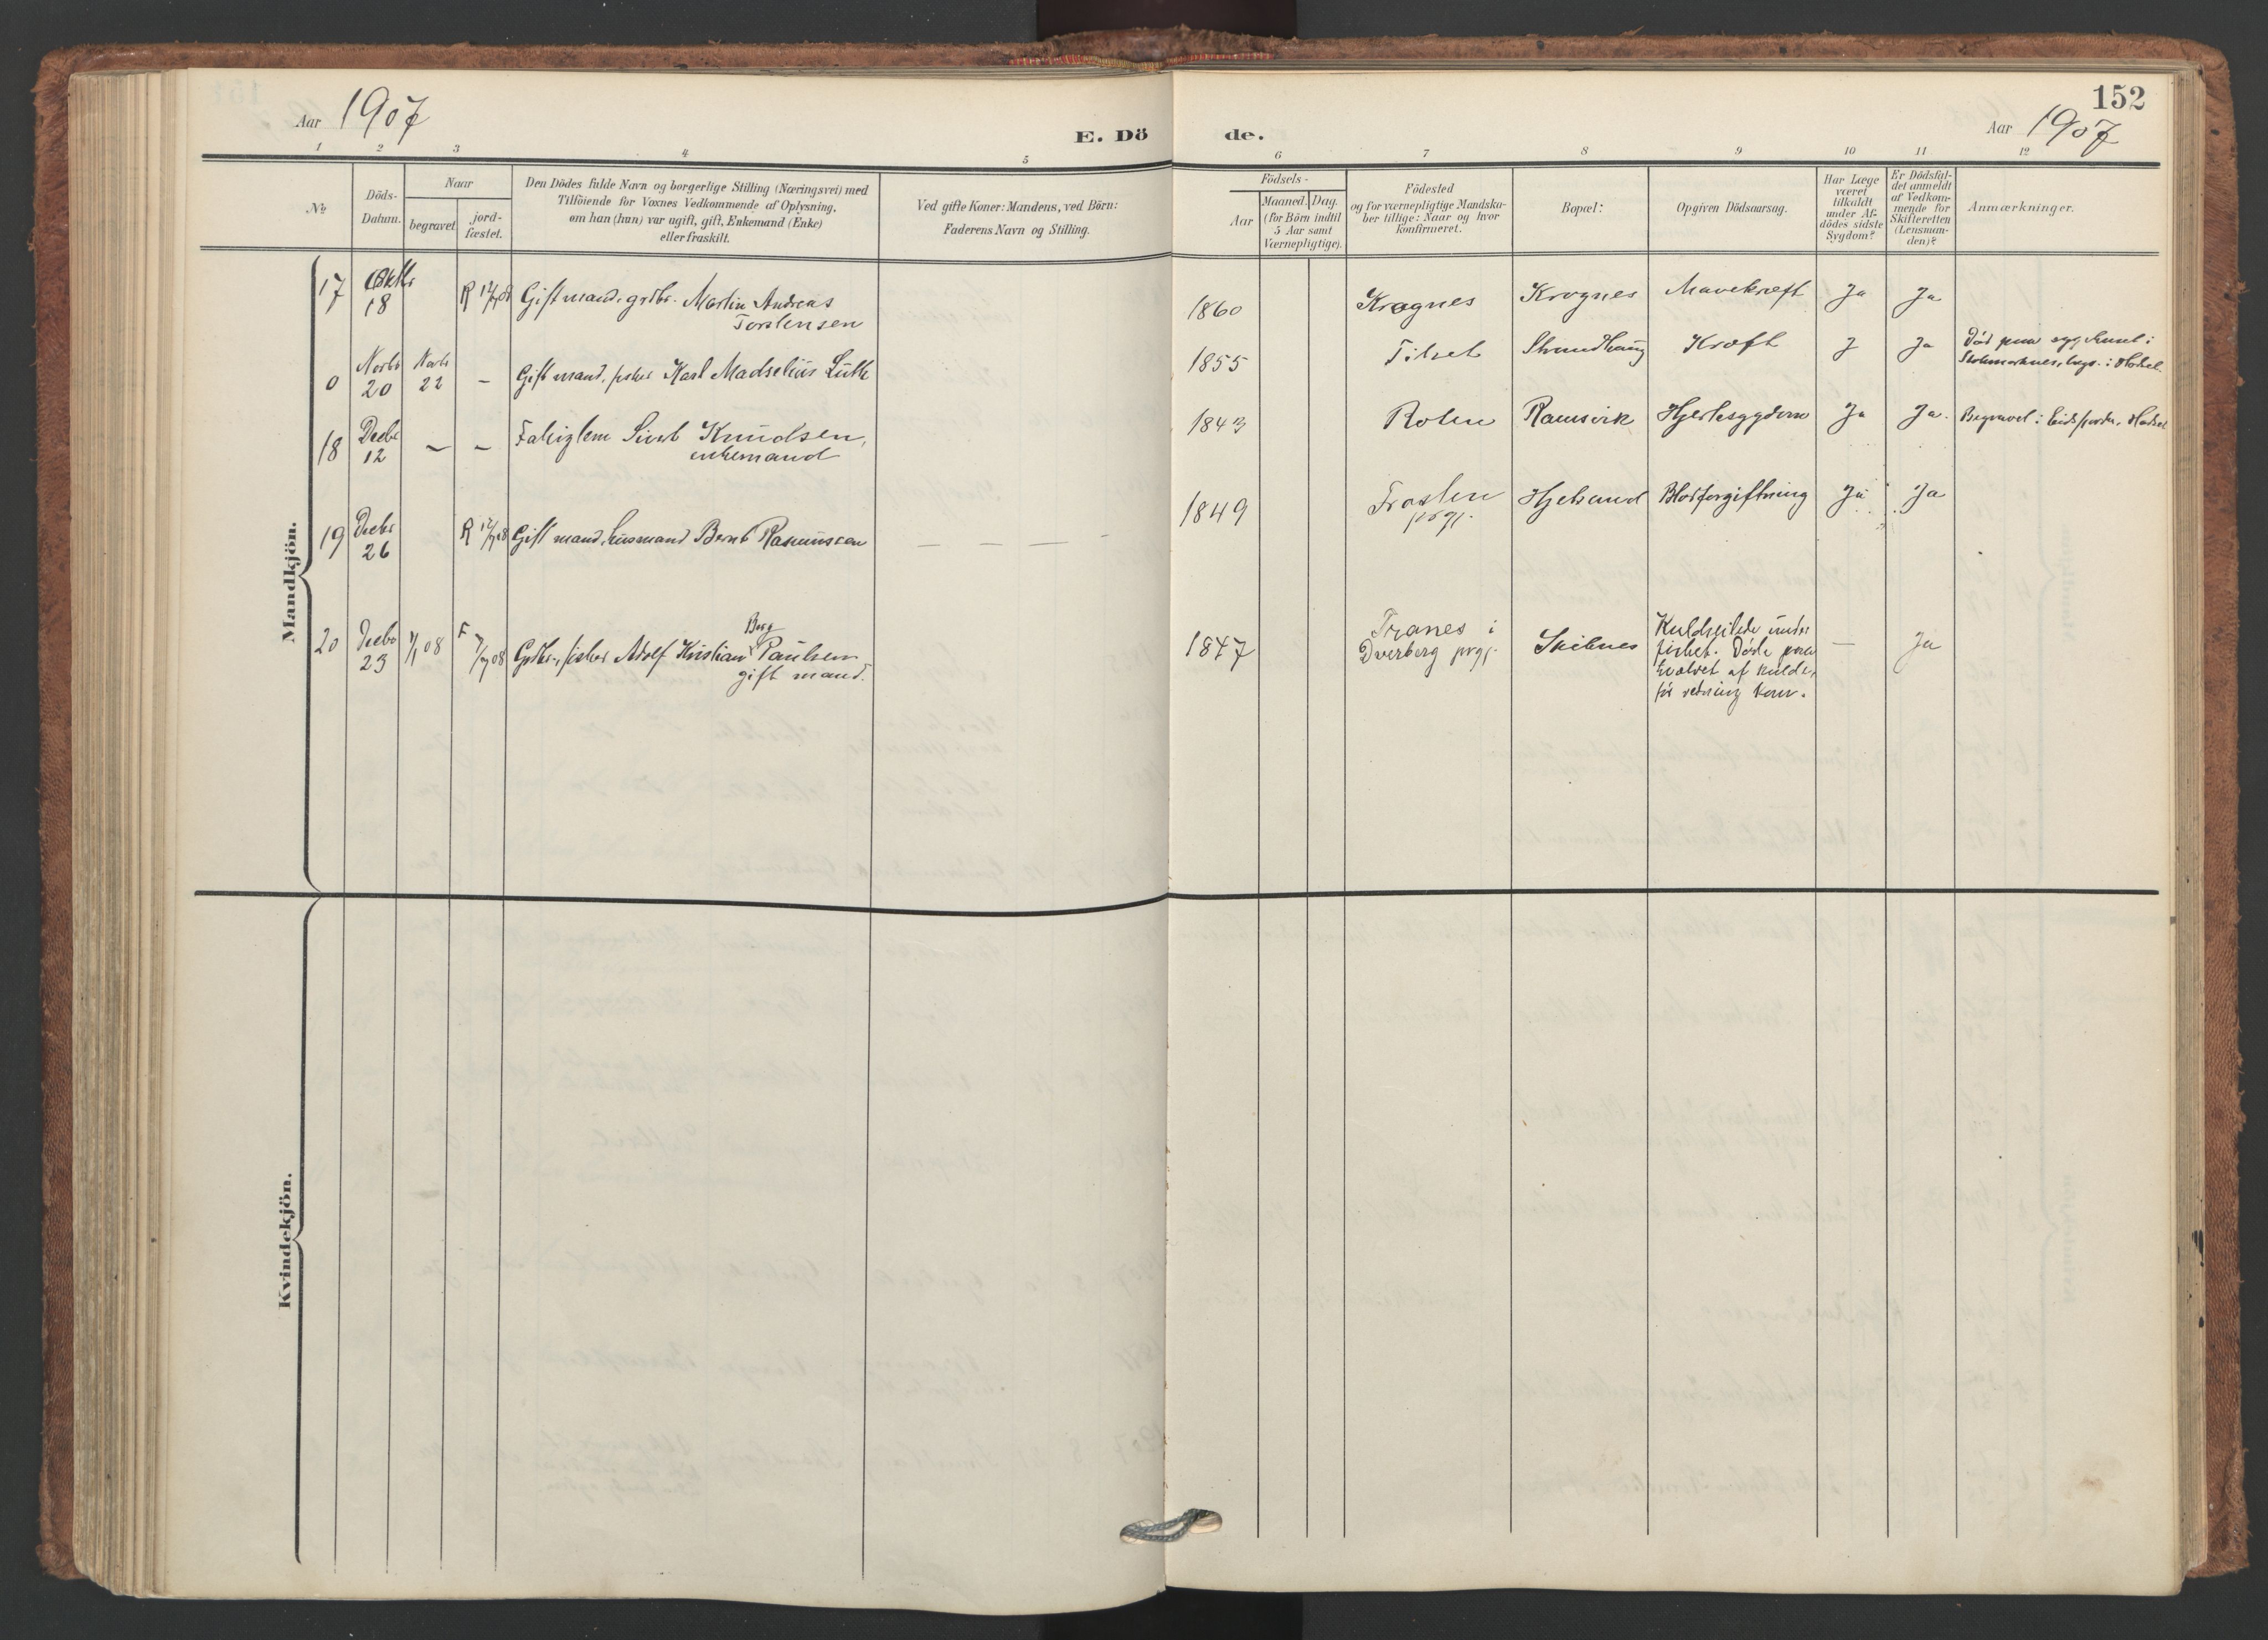 152
Aar 1907
E. Dö de.
Aar 1907
1 2 3 4 5 6 7 8 9 10 11 12
No
Döds-
Datum.
Naar
begravet.
jord-
fæstet.
Den Dödes fulde Navn og borgerlige Stilling (Næringsvei) med
Tilföiende for Voxnes Vedkommende af Oplysning,
om han (hun) var ugift, gift, Enkemand (Enke)
eller fraskilt.
Ved gifte Koner: Mandens, ved Börn:
Faderens Navn og Stilling.
Födsels-
Aar
Maaned. Dag.
(for Börn indtil
5 Aar samt
Værnepligtige).
Födested
og for værnepligtige Mandska-
ber tillige: Naar og hvor
konfirmeret.
Bopæl:
Opgiven Dödsaarsag.
Har Læge
været
tilkaldt
under Af-
dödes sidste
Sygdom?
Er Dödsfal-
det anmeldt
af Vedkom-
mende for
Skifteretten
(Lensman-
den)?
Anmærkninger.
Mandkjön.
17 Oktbr 18 R 12/7 08 Gift mand, grdbr. Martin Andreas
Torstensen
1860 Kragnes Krognes Mavekræft Ja Ja
0 Novbr 20 Novbr 22 – Gift mand, fisker Karl Madselius Lütk
1855 Tilset Strandhaug Kræft J Ja Död paa sygehuset i
Stokmarknes, begr. i Hadsel.
18 Decbr 12 – – Fattiglem Sivert Knudsen,
enkemand
1843 Roten Ramsvik Hjertesygdom Ja Ja. Begravet i Eidsfjorden, Hadsel
19 Decbr 26 R 12/7 08 Gift mand, husmand Bernt Rasmussen – – – –
1849 Trosten
prgj.
Hjelsand Blodforgiftning Ja Ja
20 Decbr 23 1/1 08 F /7 08 Grdbr., fisker Adolf Kristian Berg Paulsen
gift mand.
1847 Tranes i
Dverberg prgj.
Skibnes Kuldseilede under
fisket. Döde paa
hvælvet af kulde,
för redning kom.
– Ja
Kvindekjön.